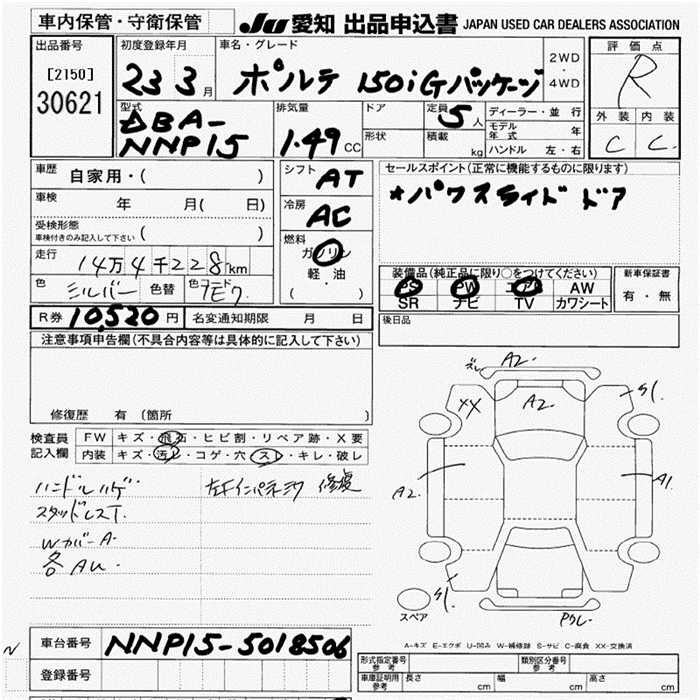 車内保管・守衛保管
JU 愛知 出品申込書 JAPAN USED CAR DEALERS ASSOCIATION
出品番号
[2150]
30621
初度登録年月
23 3月
車名・グレード
ポルテ 150iGパッケージ
2WD
・
4WD
評価点
R
外装 内装
C C
型式
DBA-
NNP15
排気量
1.49 CC
ドア
形状
定員 5人
積載 kg
ディーラー・並行
モデル年式 年
ハンドル 左・右
車歴 自家用・( )
車検 年 月( 日)
受検形態
車検付きのみ記入して下さい ( )
走行 14万4千228km
色 シルバー 色替 カラーNo.
シフト AT
冷房 AC
燃料
ガソリン
軽・油
( )
セールスポイント(正常に機能するものに限ります)
*パワスライドドア
装備品(純正品に限り○をつけてください)
PS PW エアB AW
SR ナビ TV カワシート
新車保証書
有・無
後日品
R券 10,520円 名変通知期限 月 日
注意事項申告欄(不具合内容等は具体的に記入して下さい)
修復歴 有(箇所 )
検査員
記入欄
FW キズ・飛石・ヒビ割・リペア跡・X要
内装 キズ・汚レ・コゲ・穴・スレ・キレ・破レ
ハンドルハゲ
スタッドレスT.
WカバーA.
各AU.
左Fインパネミワ 修復
ズレ A2.
XX
A2.
S1.
A2.
A1.
S1.
スペア
Pワレ.
A-キズ E-エクボ U-凹み W-補修跡 S-サビ C-腐食 XX-交換済
N
車台番号 NNP15-5018506
登録番号
形式指定番号
参考
類別区分番号
参考
車庫証明用
参考
長さ cm 幅 cm 高さ cm